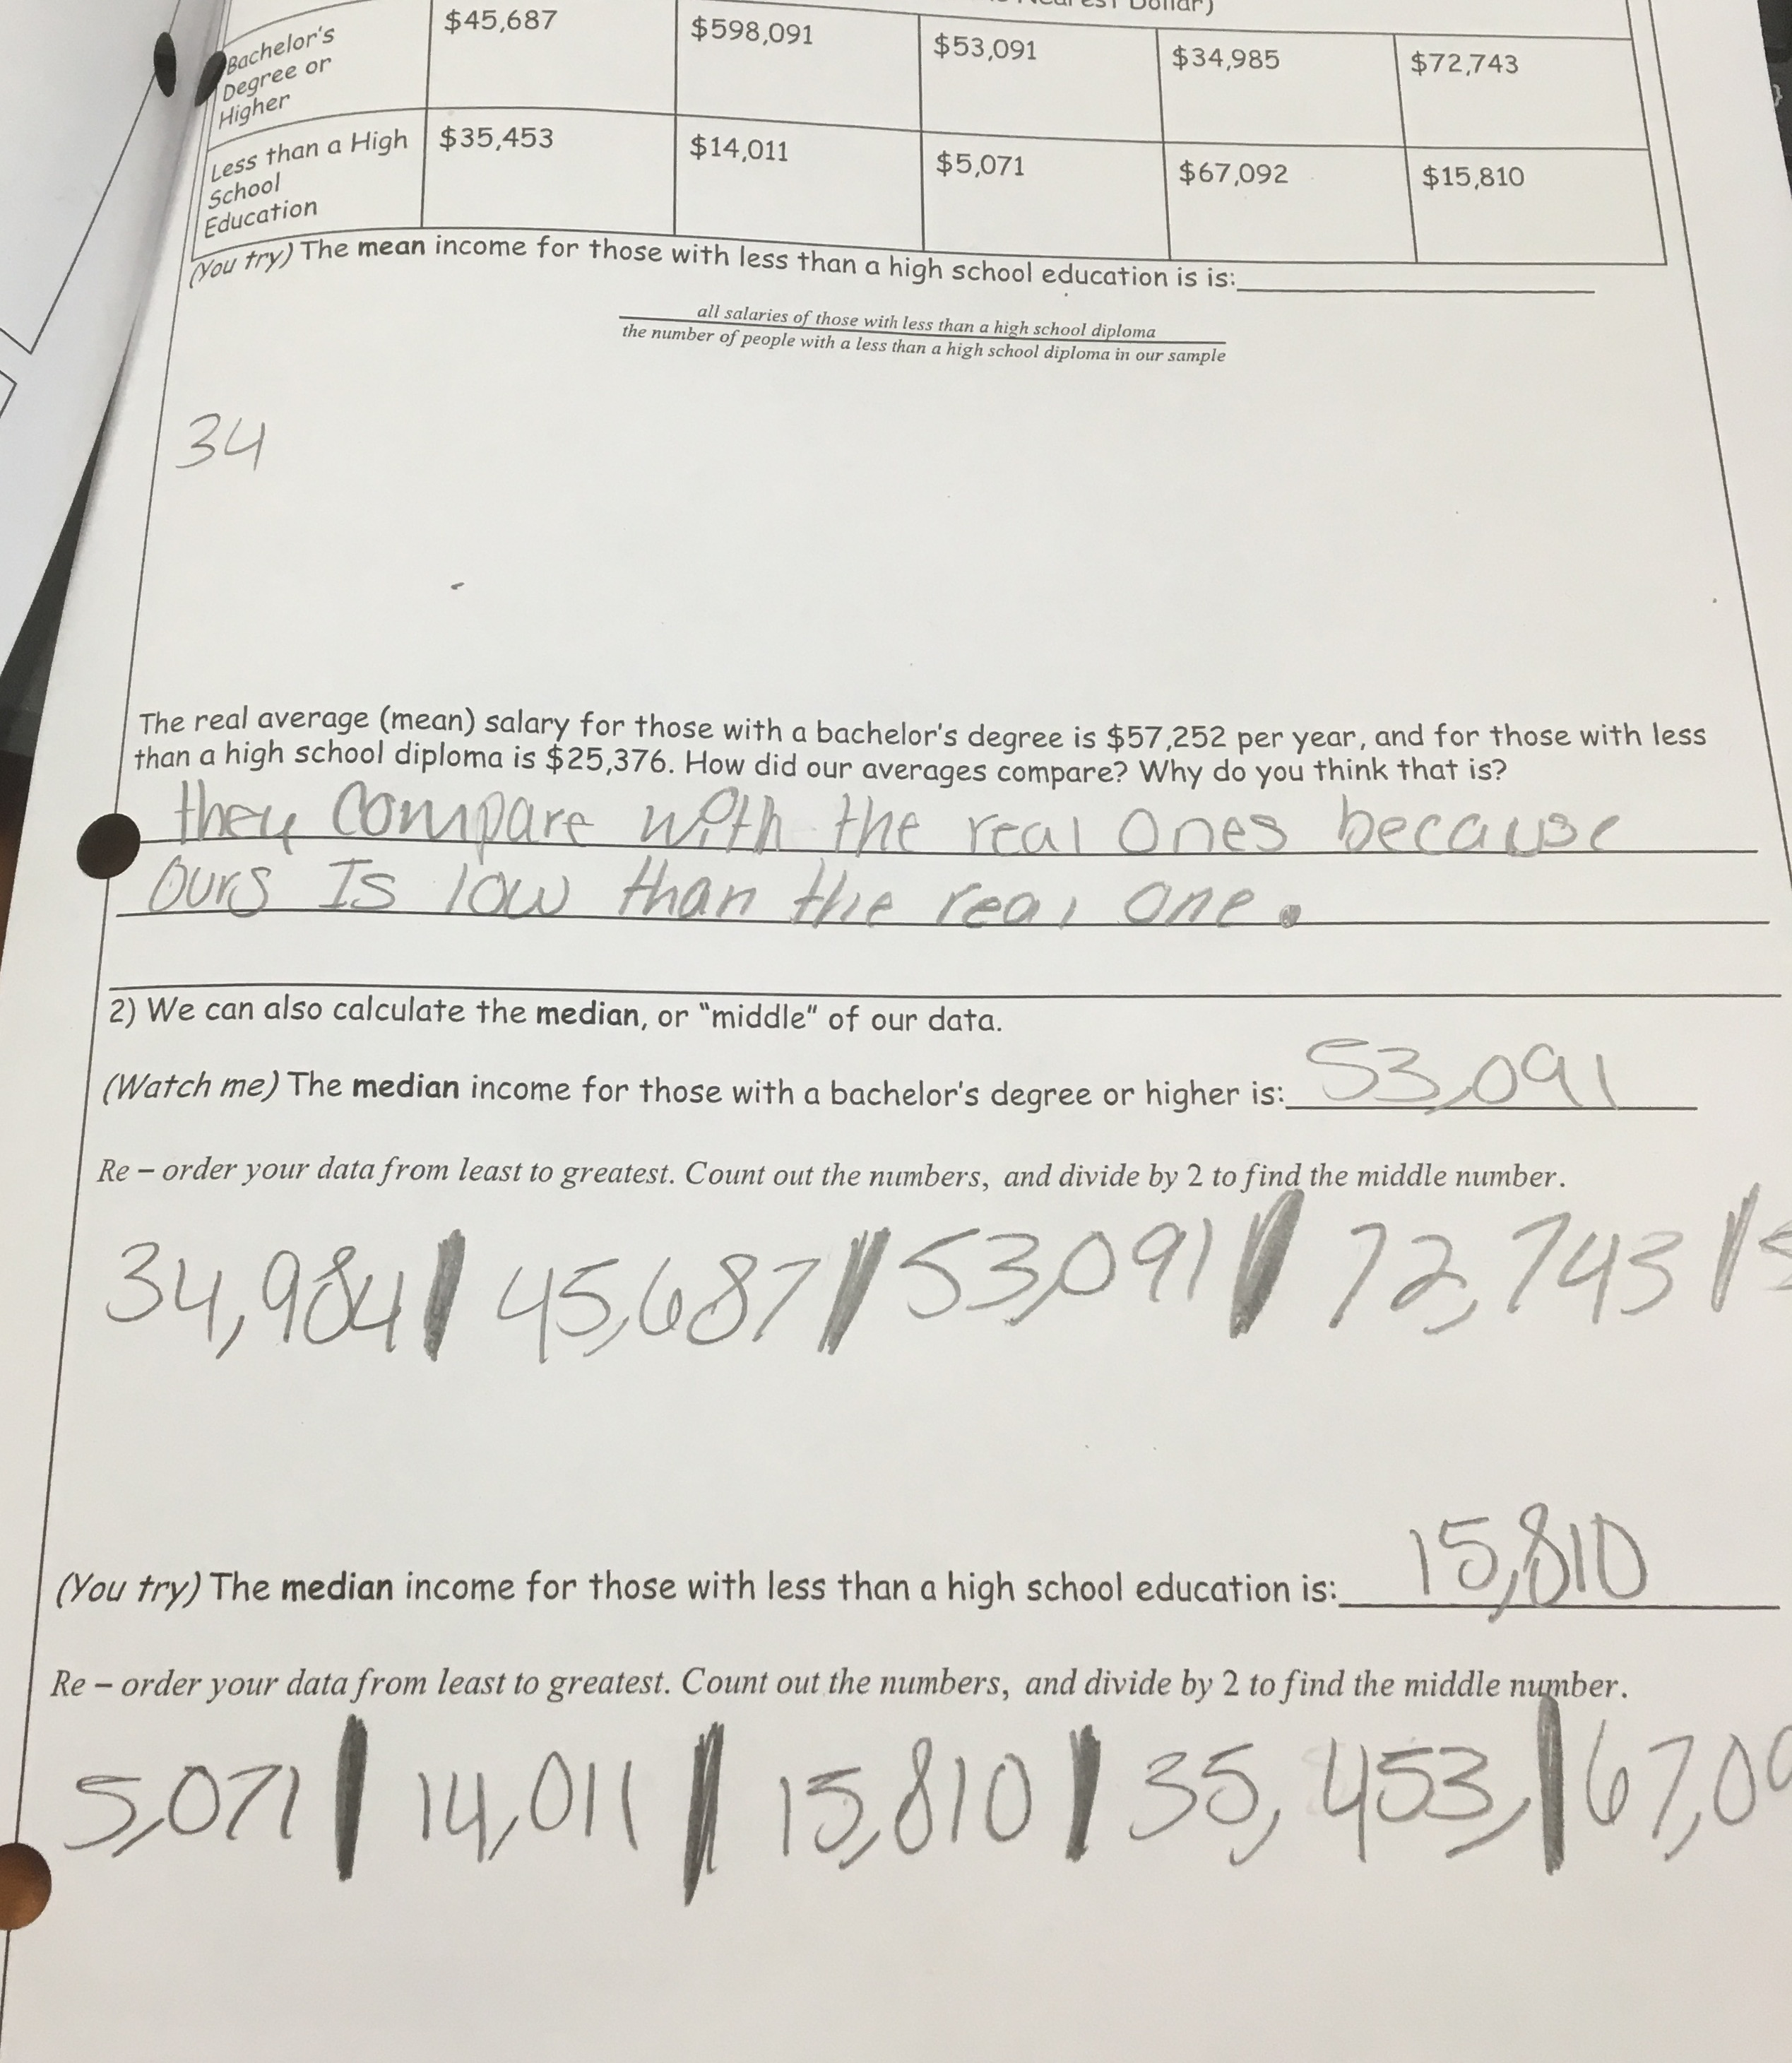 Nearest Dollar)
Bachelor's
Degree or
Higher
$45,687
$598,091
$53,091
$34,985
$72,743
Less than a High
School
Education
$35,453
$14,011
$5,071
$67,092
$15,810
(You try) The mean income for those with less than a high school education is is:
all salaries of those with less than a high school diploma
the number of people with a less than a high school diploma in our sample
34
The real average (mean) salary for those with a bachelor's degree is $57,252 per year, and for those with less
than a high school diploma is $25,376. How did our averages compare? Why do you think that is?
they compare with the real ones because
ours Is low than the real one.
2) We can also calculate the median, or "middle" of our data.
(Watch me) The median income for those with a bachelor's degree or higher is: 53,091
Re – order your data from least to greatest. Count out the numbers, and divide by 2 to find the middle number.
34,984 | 45,687 | 53,091 | 72,743 |
(You try) The median income for those with less than a high school education is: 15,810
Re – order your data from least to greatest. Count out the numbers, and divide by 2 to find the middle number.
5,071 | 14,011 | 15,810 | 35,453, | 67,0